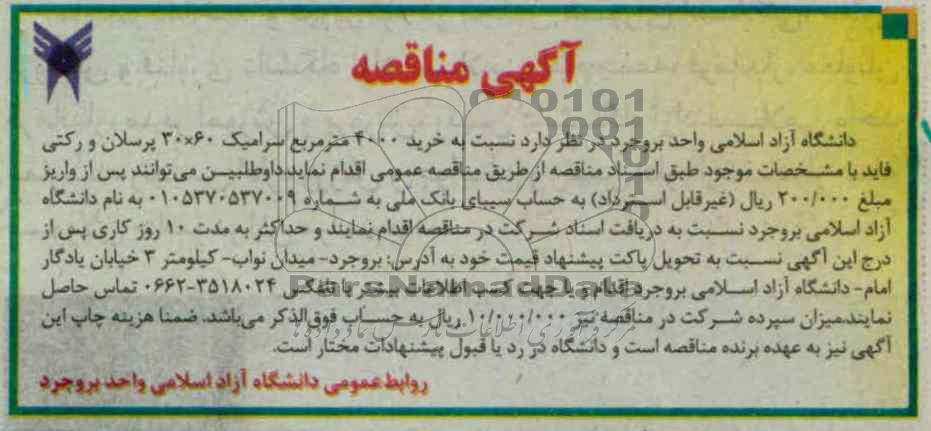 آگهی مناقصه
دانشگاه آزاد اسلامی واحد بروجرد در نظر دارد نسبت به خرید ۴۰۰۰ مترمربع سرامیک ۶۰×۳۰ پرسلان و رکتی
فاید با مشخصات موجود طبق اسناد مناقصه از طریق مناقصه عمومی اقدام نماید.داوطلبین می‌توانند پس از واریز
مبلغ ۲۰۰/۰۰۰ ریال (غیرقابل استرداد) به حساب سیبای بانک ملی به شماره ۰۱۰۵۳۷۰۵۳۷۰۰۹ به نام دانشگاه
آزاد اسلامی بروجرد نسبت به دریافت اسناد شرکت در مناقصه اقدام نمایند و حداکثر به مدت ۱۰ روز کاری پس از
درج این آگهی نسبت به تحویل پاکت پیشنهاد قیمت خود به آدرس: بروجرد- میدان نواب- کیلومتر ۳ خیابان یادگار
امام- دانشگاه آزاد اسلامی بروجرد اقدام و یا جهت کسب اطلاعات بیشتر با تلفکس ۳۵۱۸۰۲۴-۰۶۶۲ تماس حاصل
نمایند.میزان سپرده شرکت در مناقصه نیز ۱۰/۰۰۰/۰۰۰ ریال به حساب فوق‌الذکر می‌باشد. ضمنا هزینه چاپ این
آگهی نیز به عهده برنده مناقصه است و دانشگاه در رد یا قبول پیشنهادات مختار است.
روابط عمومی دانشگاه آزاد اسلامی واحد بروجرد
ParsNamadData